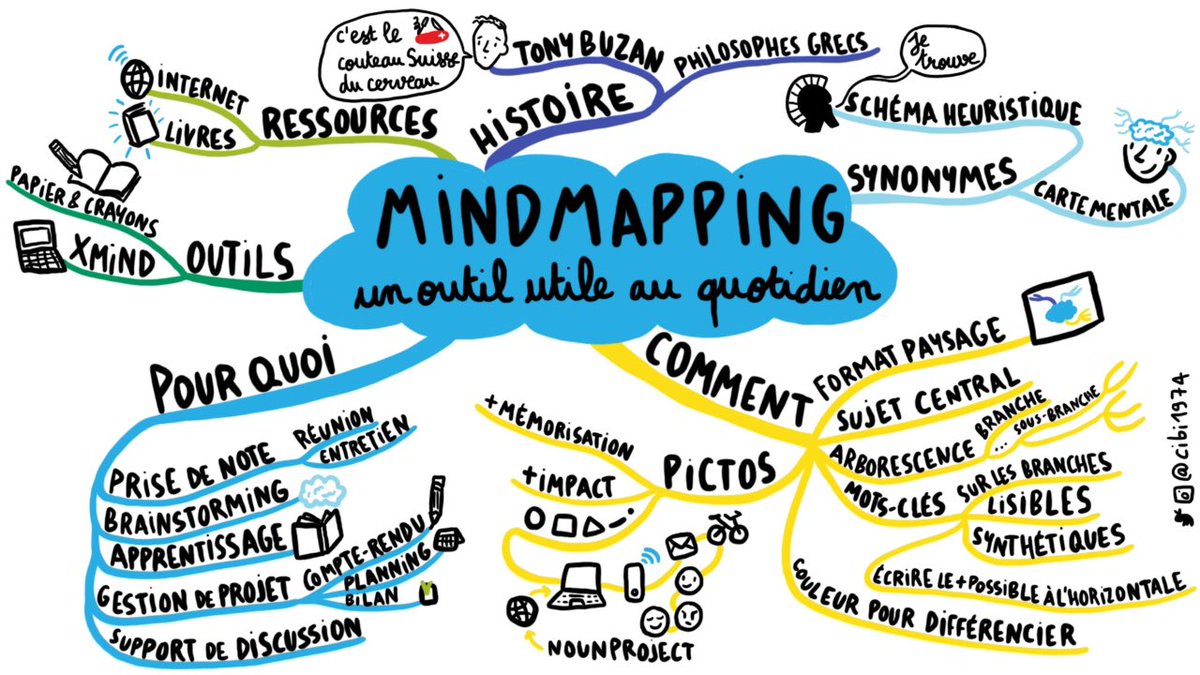 MINDMAPPING
un outil utile au quotidien
HISTOIRE
TONY BUZAN
c'est le
couteau Suisse
du cerveau
PHILOSOPHES GRECS
SYNONYMES
SCHÉMA HEURISTIQUE
Je
trouve
CARTE MENTALE
COMMENT
FORMAT PAYSAGE
SUJET CENTRAL
ARBORESCENCE
BRANCHE
... SOUS-BRANCHE
MOTS-CLÉS
SUR LES BRANCHES
LISIBLES
SYNTHÉTIQUES
ÉCRIRE LE + POSSIBLE À L'HORIZONTALE
COULEUR POUR DIFFÉRENCIER
PICTOS
+MÉMORISATION
+IMPACT
NOUNPROJECT
POURQUOI
PRISE DE NOTE
RÉUNION
ENTRETIEN
BRAINSTORMING
APPRENTISSAGE
GESTION DE PROJET
COMPTE-RENDU
PLANNING
BILAN
SUPPORT DE DISCUSSION
OUTILS
PAPIER & CRAYONS
XMIND
RESSOURCES
INTERNET
LIVRES
@cibi1974